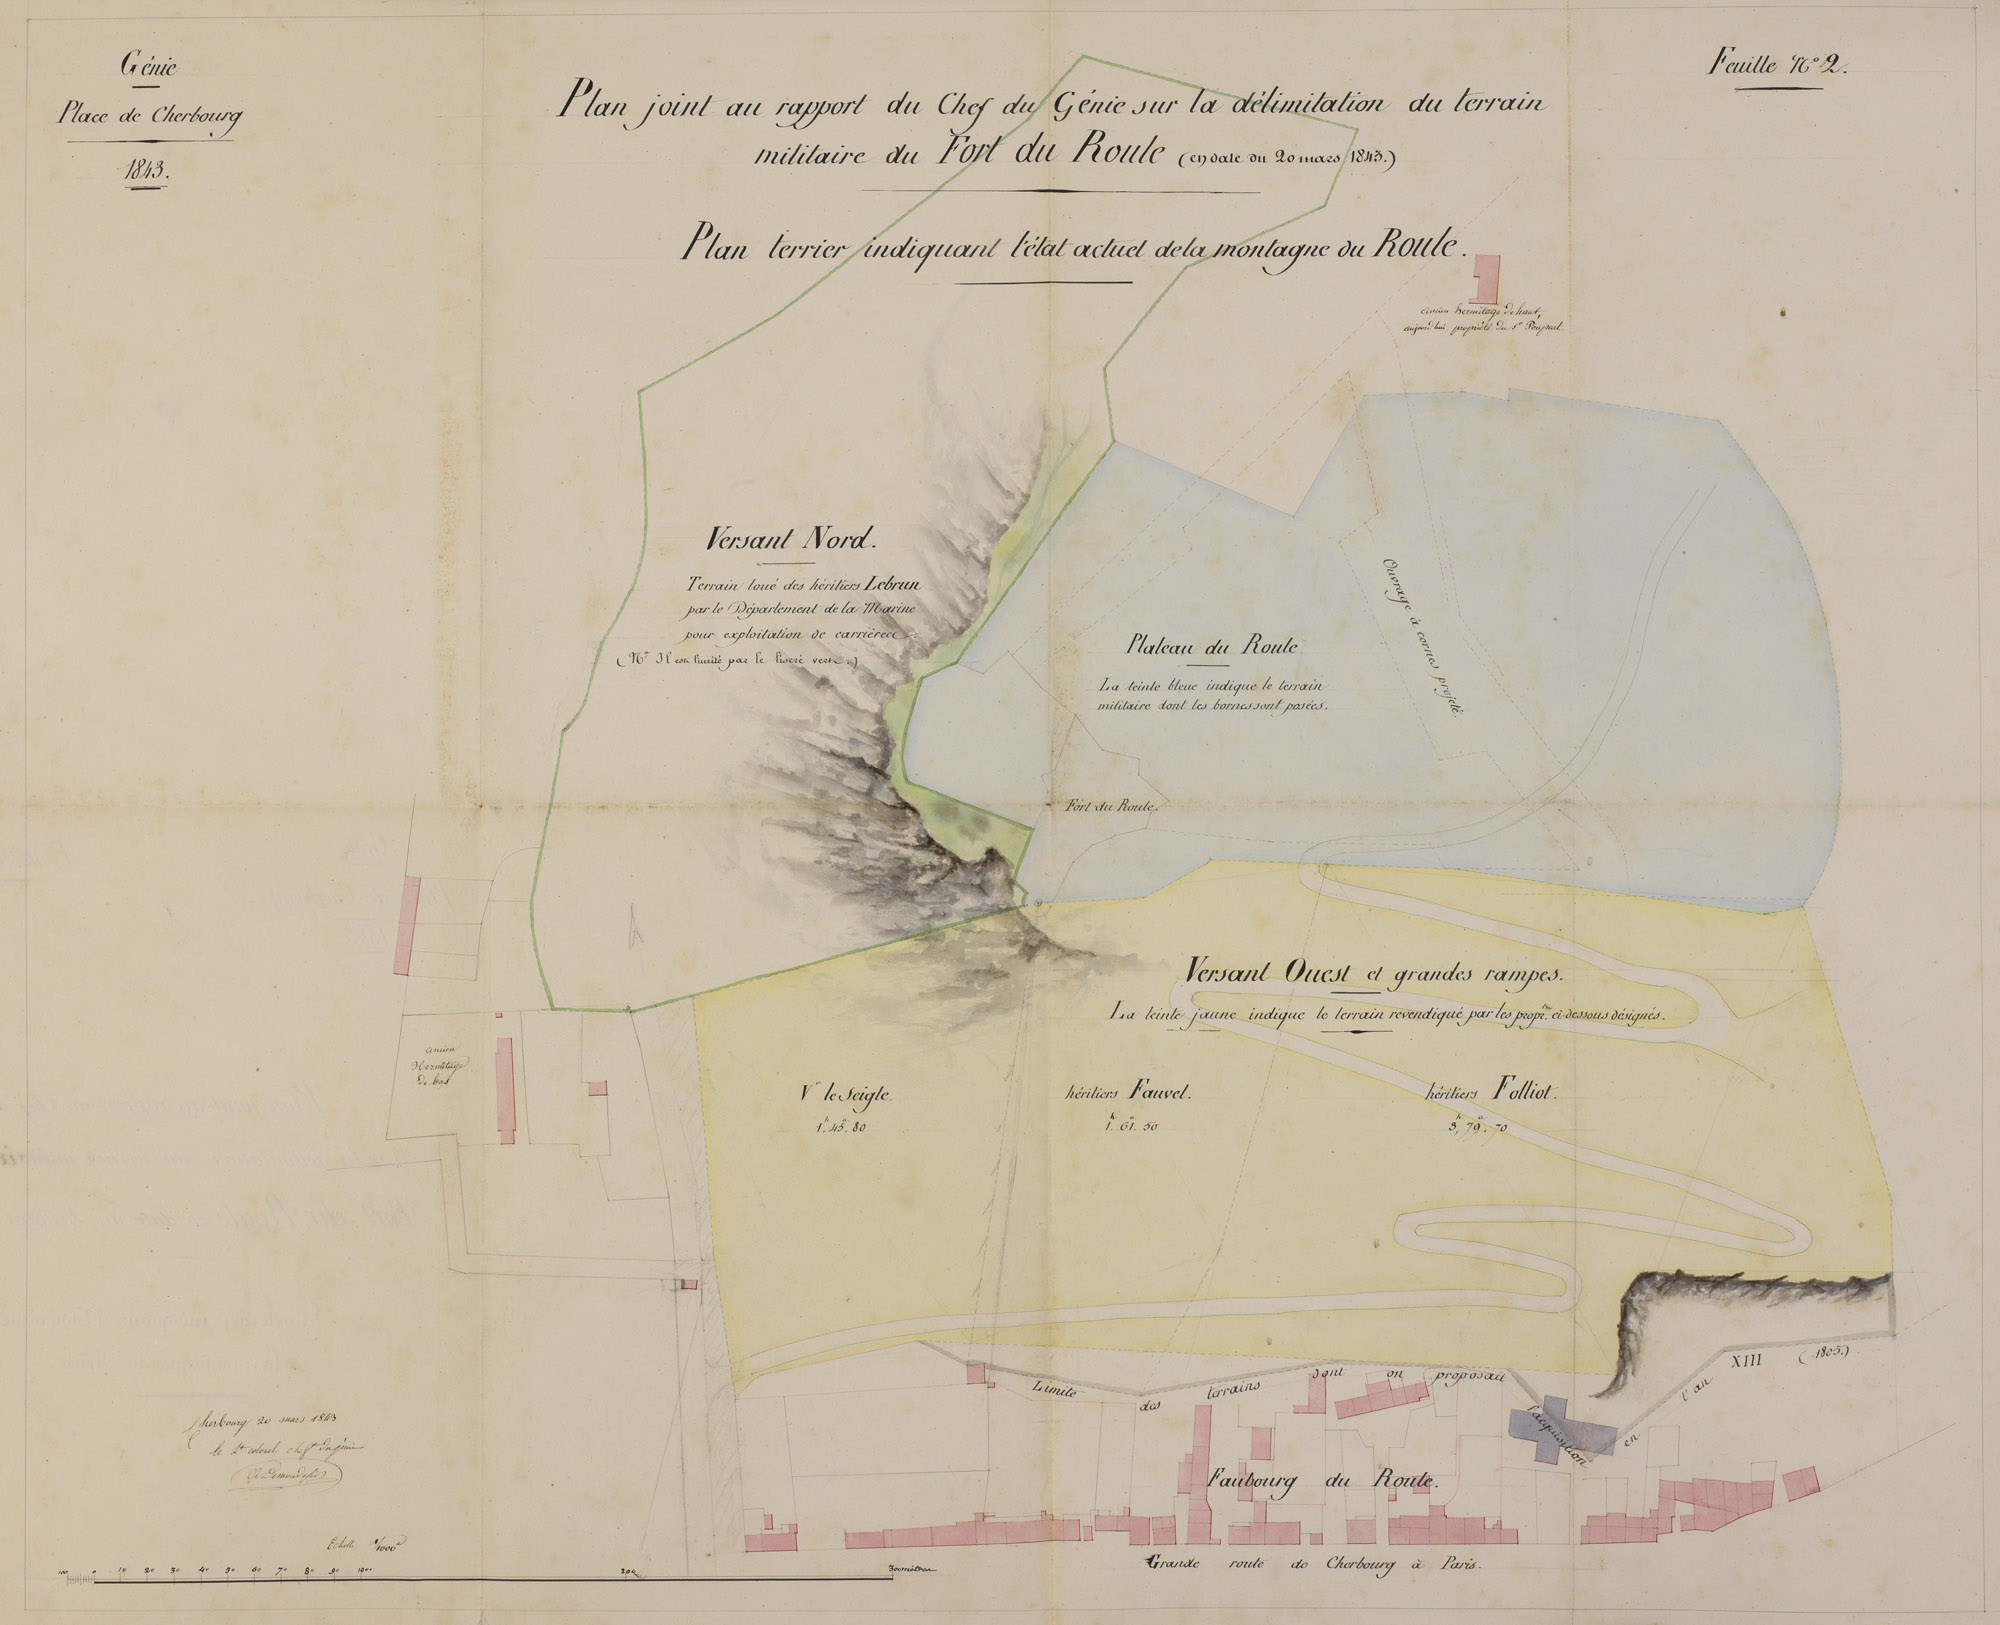 Génie
Place de Cherbourg
1843.
Feuille N° 2.
Plan joint au rapport du Chef du Génie sur la délimitation du terrain
militaire du Fort du Roule (en date du 20 mars 1843.)
Plan terrier indiquant l'état actuel de la montagne du Roule.
ancien hermitage de haut,
aujourd'hui propriété du Sr
Versant Nord.
Terrain loué des héritiers Lebrun
par le Département de la Marine
pour exploitation de carrières
(Na Il est limité par le liseré vert.)
Ouvrage à cornes projeté
Plateau du Roule
La teinte bleue indique le terrain
militaire dont les bornes sont posées.
Fort du Roule.
Versant Ouest et grandes rampes.
La teinte jaune indique le terrain revendiqué par les propres ci-dessous désignés.
ancien
Hermitage
de bas
Ve le Seigle.
1h. 45a. 80
héritiers Fauvel.
1h. 61a. 50
héritiers Folliot.
3h, 79a. 70
Limite des terrains dont on proposait l'acquisition en l'an XIII (1805.)
Cherbourg 20 mars 1843
le Lt colonel chef du génie
Faubourg du Roule.
Grande route de Cherbourg à Paris.
Echelle 1/1000e
100 0 10 20 30 40 50 60 70 80 90 100 200 300 mètres